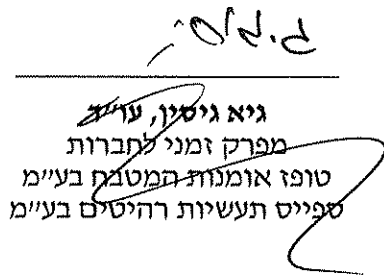 גיא גיסין, עו״ד
מפרק זמני לחברות
טופז אומנות המטבח בע״מ
ספייס תעשיות רהיטים בע״מ